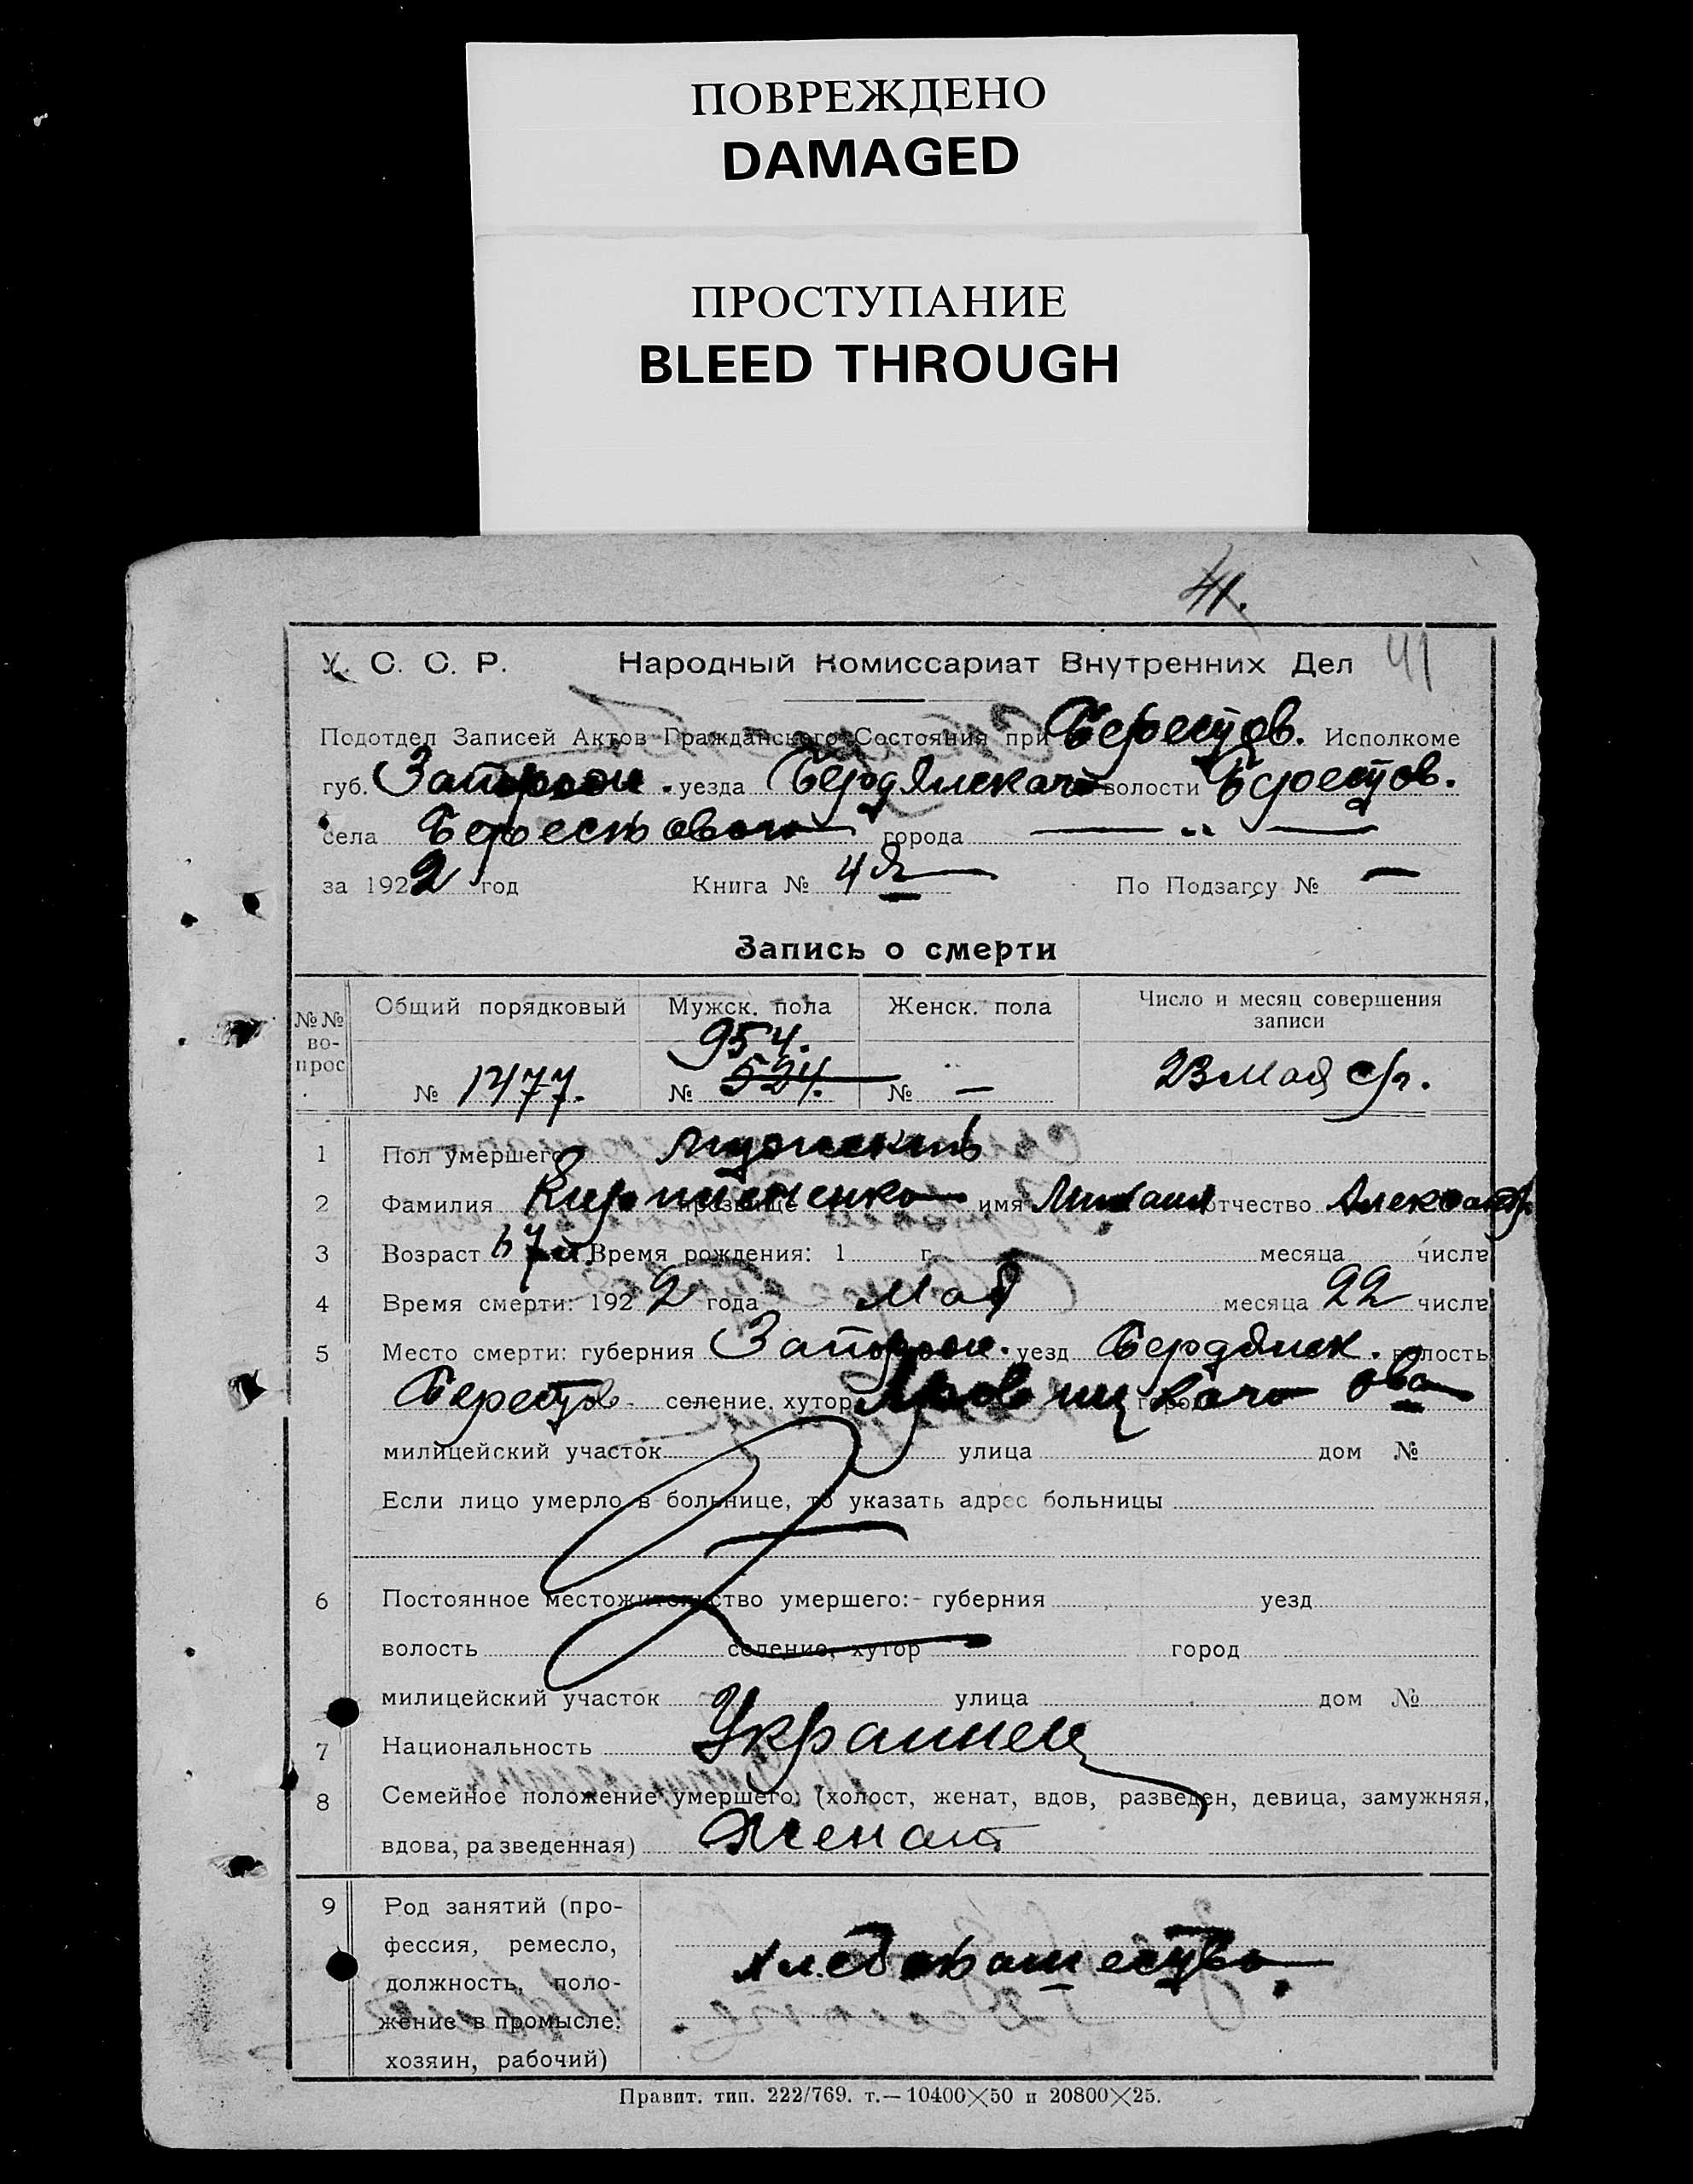 ПОВРЕЖДЕНО
DAMAGED
ПРОСТУПАНИЕ
BLEED THROUGH
41.
У. С. С. Р. Народный Комиссариат Внутренних Дел 41
Подотдел Записей Актов Гражданского Состояния при Берестов. Исполкоме
губ. Запорож. уезда Бердянского волости Берестов.
села Берестового города — " —
за 1922 год Книга № 4я По Подзагсу № —
Запись о смерти
№№ вопрос Общий порядковый Мужск. пола Женск. пола Число и месяц совершения записи
954.
№ 1477. № 524. № — 23 мая с/г.
1 Пол умершего мужской
2 Фамилия прозвище имя Михаил отчество Александр.
3 Возраст 67 л. Время рождения: 1 г. месяца числа
4 Время смерти: 1922 года мая месяца 22 числа
5 Место смерти: губерния Запорож. уезд Бердянск. волость
Берестов. селение, хутор город
милицейский участок улица дом №
Если лицо умерло в больнице, то указать адрес больницы
6 Постоянное местожительство умершего: губерния уезд
волость селение, хутор город
милицейский участок улица дом №
7 Национальность Украинец
8 Семейное положение умершего: (холост, женат, вдов, разведен, девица, замужняя,
вдова, разведенная) Женат
9 Род занятий (про-
фессия, ремесло,
должность, поло- хлебопашество.
жение в промысле:
хозяин, рабочий)
Правит. тип. 222/769. т.—10400×50 и 20800×25.